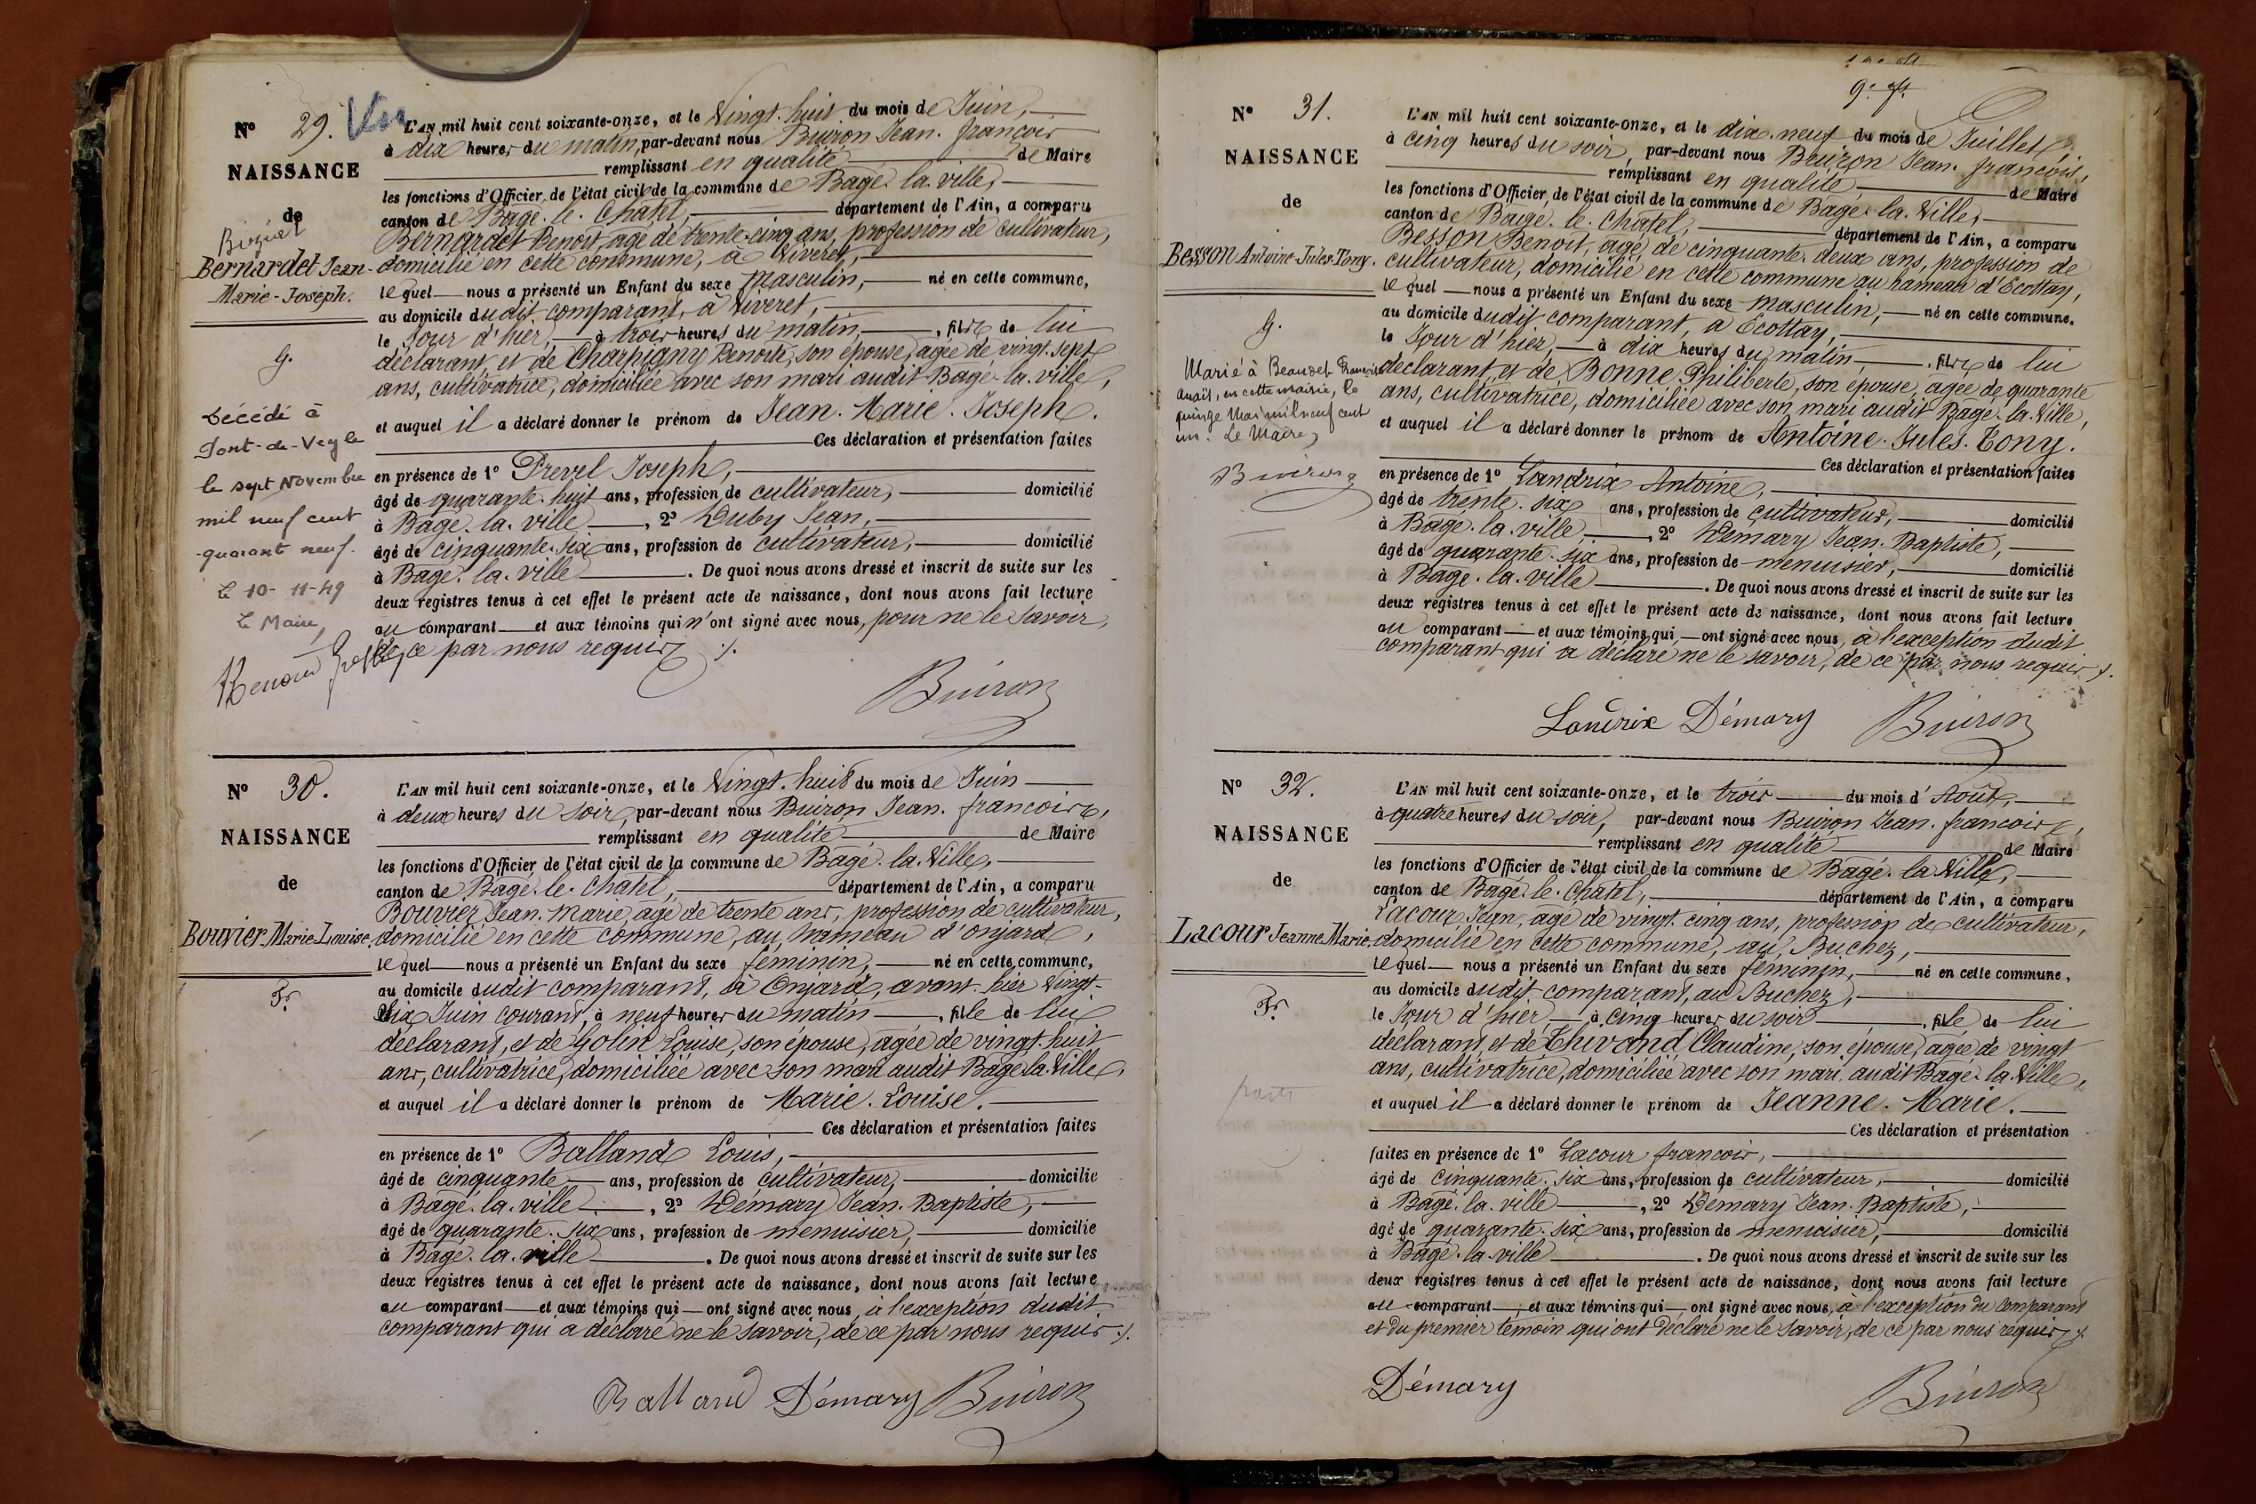 N° 29. Vu
NAISSANCE
de
Bernardet Jean-
Marie-Joseph.
G.
Décédé à
Pont-de-Veyle
le sept Novembre
mil neuf cent
quarant neuf.
Le 10-11-49
Le Maire,
L'AN mil huit cent soixante-onze, et le Vingt-huit du mois de Juin,
à dix heures du matin, par-devant nous Buiron Jean-françois
remplissant en qualité de Maire
les fonctions d'Officier de l'état civil de la commune de Bagé-la-ville,
canton de Bagé-le-Chatel, département de l'Ain, a comparu
Bernardet Benoit, âgé de trente-cinq ans, profession de cultivateur,
domicilié en cette commune, à Viveret,
lequel nous a présenté un Enfant du sexe masculin, né en cette commune,
au domicile dudit comparant, à Viveret,
le Jour d'hier, à trois heures du matin, fils de lui
déclarant, et de Charpigny Benoite, son épouse, âgée de vingt-sept
ans, cultivatrice, domiciliée avec son mari audit Bagé-la-ville,
et auquel il a déclaré donner le prénom de Jean-Marie-Joseph.
Ces déclaration et présentation faites
en présence de 1° Prevel Joseph,
âgé de quarante-huit ans, profession de cultivateur, domicilié
à Bagé-la-ville, 2° Duby Jean,
âgé de cinquante-six ans, profession de cultivateur, domicilié
à Bagé-la-ville. De quoi nous avons dressé et inscrit de suite sur les
deux registres tenus à cet effet le présent acte de naissance, dont nous avons fait lecture
au comparant et aux témoins qui n'ont signé avec nous, pour ne le savoir,
de ce par nous requis ./.
Buiron
N° 30.
NAISSANCE
de
Bouvier Marie-Louise
Fr.
L'AN mil huit cent soixante-onze, et le Vingt-huit du mois de Juin
à deux heures du soir, par-devant nous Buiron Jean-françois,
remplissant en qualité de Maire
les fonctions d'Officier de l'état civil de la commune de Bagé-la-Ville,
canton de Bagé-le-Chatel, département de l'Ain, a comparu
Bouvier Jean-Marie, âgé de trente ans, profession de cultivateur,
domicilié en cette commune, au hameau d'onjard,
lequel nous a présenté un Enfant du sexe féminin, né en cette commune,
au domicile dudit comparant, à Onjard, avant-hier Vingt-
six Juin courant, à neuf heures du matin, fille de lui
déclarant, et de Golin Louise, son épouse, âgée de vingt-huit
ans, cultivatrice, domiciliée avec son mari audit Bagé-la-Ville,
et auquel il a déclaré donner le prénom de Marie-Louise.
Ces déclaration et présentation faites
en présence de 1° Balland Louis,
âgé de cinquante ans, profession de cultivateur, domicilié
à Bagé-la-ville, 2° Démary Jean-Baptiste,
âgé de quarante-six ans, profession de menuisier, domicilié
à Bagé-la-ville. De quoi nous avons dressé et inscrit de suite sur les
deux registres tenus à cet effet le présent acte de naissance, dont nous avons fait lecture
au comparant et aux témoins qui ont signé avec nous, à l'exception dudit
comparant qui a déclaré ne le savoir, de ce par nous requis ./.
Balland Démary Buiron
N° 31.
NAISSANCE
de
Besson Antoine-Jules-Tony.
G.
Marié à Beaudet Francoise
en cette mairie, le
quinze Mai mil neuf cent
un. Le Maire,
Buiron
L'AN mil huit cent soixante-onze, et le dix-neuf du mois de Juillet,
à cinq heures du soir, par-devant nous Buiron Jean-françois,
remplissant en qualité de Maire
les fonctions d'Officier de l'état civil de la commune de Bagé-la-Ville,
canton de Bagé-le-Chatel, département de l'Ain, a comparu
Besson Benoit, âgé de cinquante-deux ans, profession de
cultivateur, domicilié en cette commune au hameau d'Ecottay,
lequel nous a présenté un Enfant du sexe masculin, né en cette commune,
au domicile dudit comparant, à Ecottay,
le Jour d'hier, à dix heures du matin, fils de lui
déclarant, et de Bonne Philiberte, son épouse, âgée de quarante
ans, cultivatrice, domiciliée avec son mari audit Bagé-la-Ville,
et auquel il a déclaré donner le prénom de Antoine-Jules-Tony.
Ces déclaration et présentation faites
en présence de 1° Landrix Antoine,
âgé de trente-six ans, profession de cultivateur, domicilié
à Bagé-la-ville, 2° Démary Jean-Baptiste,
âgé de quarante-six ans, profession de menuisier, domicilié
à Bagé-la-ville. De quoi nous avons dressé et inscrit de suite sur les
deux registres tenus à cet effet le présent acte de naissance, dont nous avons fait lecture
au comparant et aux témoins qui ont signé avec nous, à l'exception dudit
comparant qui a déclaré ne le savoir, de ce par nous requis ./.
Landrix Démary Buiron
N° 32.
NAISSANCE
de
Lacour Jeanne Marie
Fr.
L'AN mil huit cent soixante-onze, et le trois du mois d'Août,
à quatre heures du soir, par-devant nous Buiron Jean-françois,
remplissant en qualité de Maire
les fonctions d'Officier de l'état civil de la commune de Bagé-la-Ville,
canton de Bagé-le-Chatel, département de l'Ain, a comparu
Lacour Jean, âgé de vingt-cinq ans, profession de cultivateur,
domicilié en cette commune, au Buchez,
lequel nous a présenté un Enfant du sexe féminin, né en cette commune,
au domicile dudit comparant, au Buchez,
le Jour d'hier, à cinq heures du soir, fille de lui
déclarant, et de Thivond Claudine, son épouse, âgée de vingt
ans, cultivatrice, domiciliée avec son mari audit Bagé-la-Ville,
et auquel il a déclaré donner le prénom de Jeanne-Marie.
Ces déclaration et présentation
faites en présence de 1° Lacour françois,
âgé de cinquante-six ans, profession de cultivateur, domicilié
à Bagé-la-ville, 2° Démary Jean-Baptiste,
âgé de quarante-six ans, profession de menuisier, domicilié
à Bagé-la-ville. De quoi nous avons dressé et inscrit de suite sur les
deux registres tenus à cet effet le présent acte de naissance, dont nous avons fait lecture
au comparant, et aux témoins qui ont signé avec nous, à l'exception du comparant
et du premier témoin qui ont déclaré ne le savoir, de ce par nous requis ./.
Démary Buiron